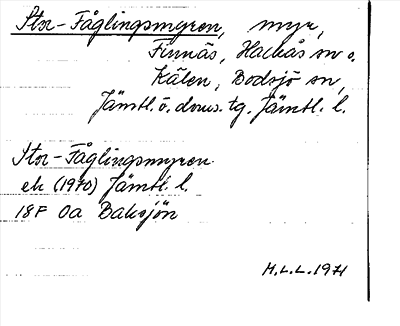 Stor-Fåglingsmyren, myr,
Finnäs, Hackås sn o.
Kälen, Bodsjö sn,
Jämtl. ö. doms. tg. Jämtl. l.
Stor-Fåglingsmyren
ek (1970) Jämtl. l.
18F 0a Baksjön
H.L.L. 1971